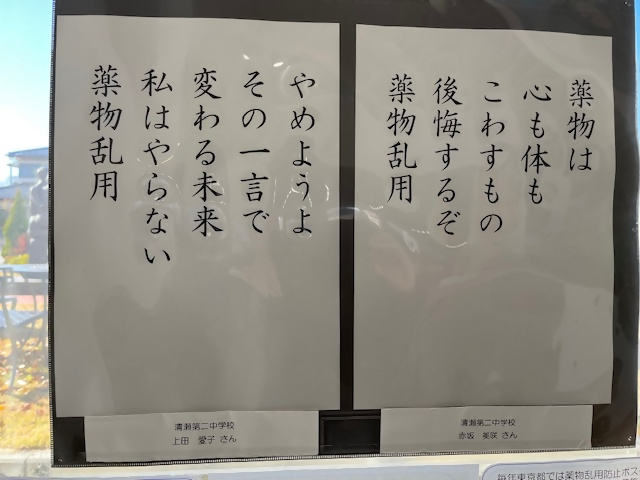 薬物は
心も体も
こわすもの
後悔するぞ
薬物乱用
清瀬第二中学校
赤坂 美咲 さん
やめようよ
その一言で
変わる未来
私はやらない
薬物乱用
清瀬第二中学校
上田 愛子 さん
毎年東京都では薬物乱用防止ポス